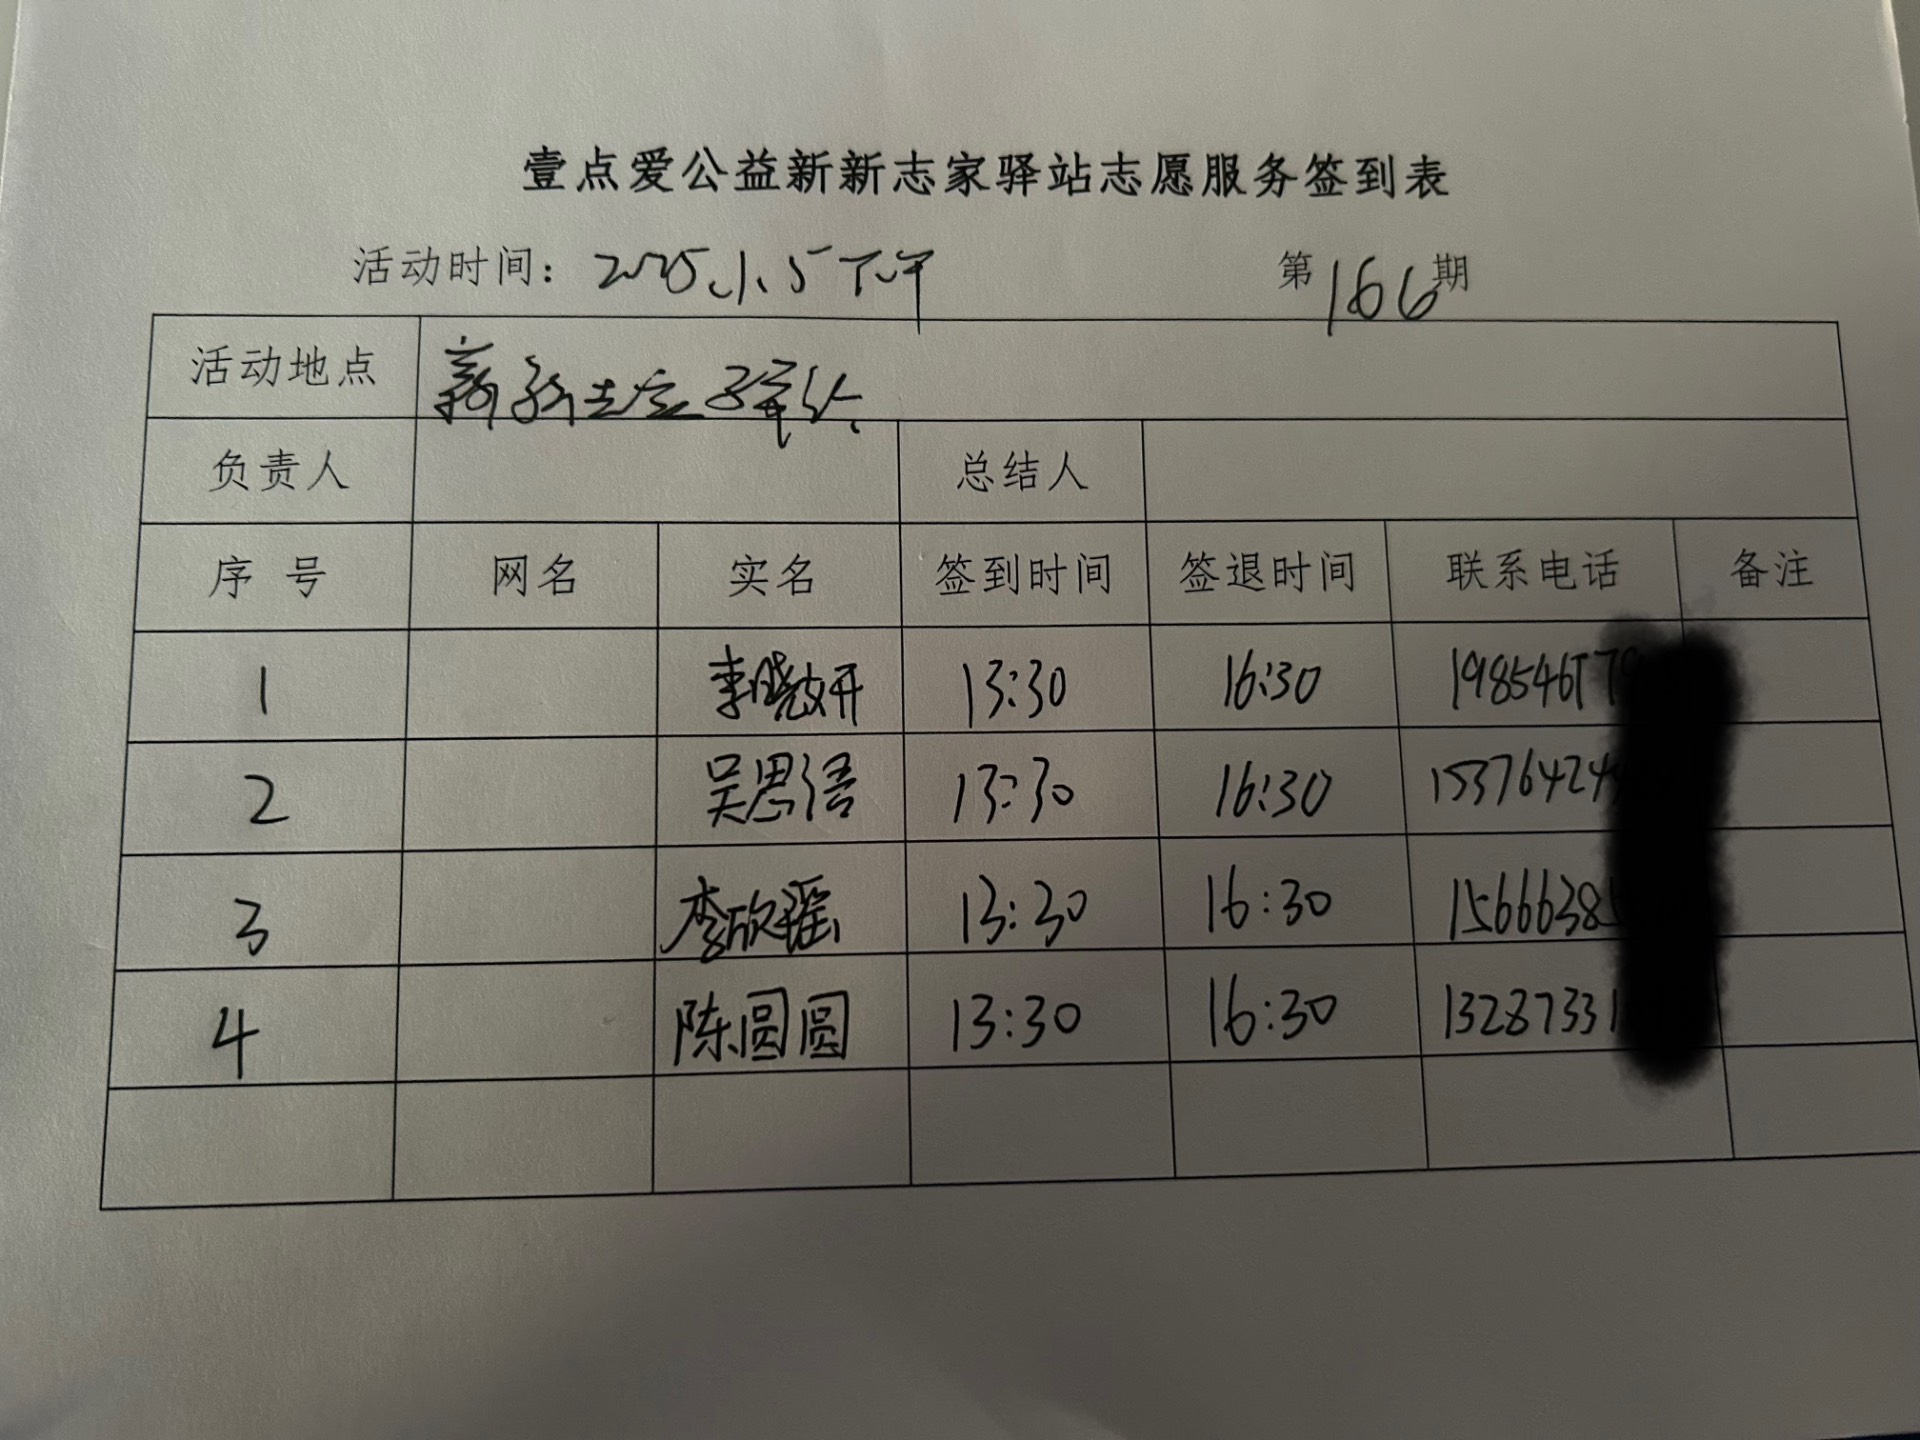 壹点爱公益新新志家驿站志愿服务签到表
活动时间：2025.1.5下午 第166期
活动地点 新新志家驿站
负责人 总结人
序号 网名 实名 签到时间 签退时间 联系电话 备注
1 李晓妍 13:30 16:30 1985461
2 吴思语 13:30 16:30 15376424
3 李欣瑶 13:30 16:30 1566638
4 陈圆圆 13:30 16:30 13287331